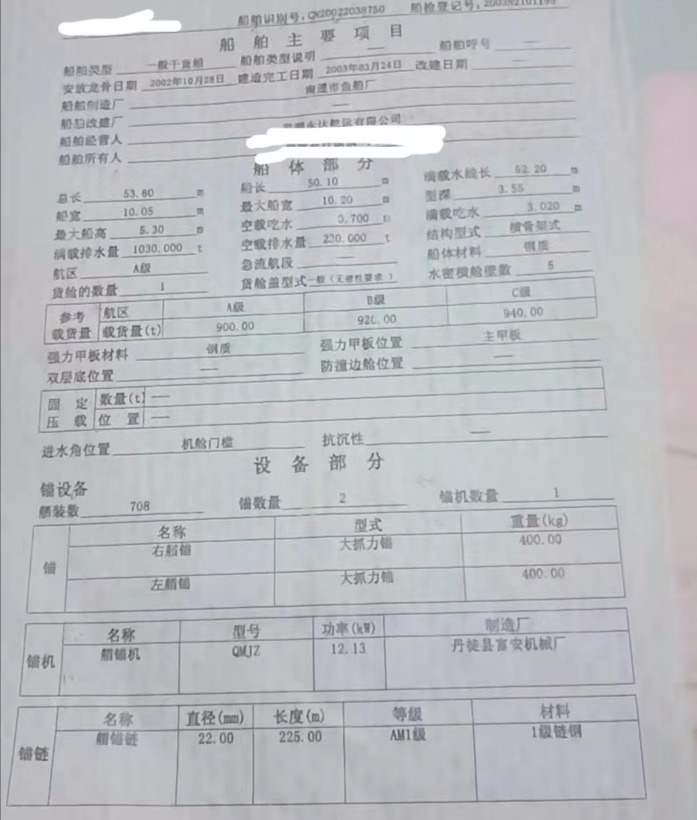 船舶识别号:CN20022038750 船检登记号:200302101195
船舶主要项目
船舶类型 一般干货船 船舶类型说明 — 船舶呼号 —
安放龙骨日期 2002年10月28日 建造完工日期 2003年03月24日 改建日期 —
船舶制造厂 南漕市鱼船厂
船舶改建厂 —
船舶经营人 永达航运有限公司
船舶所有人
船体部分
总长 53.60 m 船长 50.10 m 满载水线长 52.20 m
船宽 10.05 m 最大船宽 10.20 m 型深 3.55 m
最大船高 5.30 m 空载吃水 0.700 m 满载吃水 3.020 m
满载排水量 1030.000 t 空载排水量 230.000 t 结构型式 横骨架式
航区 A级 急流航段 — 船体材料 钢质
货舱的数量 1 货舱盖型式 一般(无密性要求) 水密横舱壁数 5
参考载货量 航区 A级 B级 C级
载货量(t) 900.00 920.00 940.00
强力甲板材料 钢质 强力甲板位置 主甲板
双层底位置 — 防撞边舱位置 —
固定压载 数量(t) —
位置 —
进水角位置 机舱门槛 抗沉性 —
设备部分
锚设备
艏装数 708 锚数量 2 锚机数量 1
锚 名称 型式 重量(kg)
右艏锚 大抓力锚 400.00
左艏锚 大抓力锚 400.00
锚机 名称 型号 功率(kW) 制造厂
艏锚机 QMJZ 12.13 丹徒县富安机械厂
锚链 名称 直径(mm) 长度(m) 等级 材料
艏锚链 22.00 225.00 AM1级 1级链钢